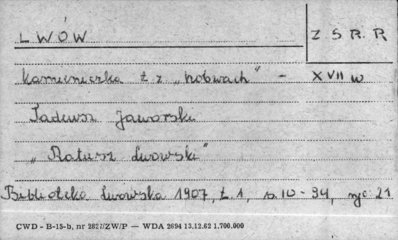 LWÓW
Z S R. R
kamieniczka t. z "                    " - XVII w
Tadeusz Jaworski
"Ratusz lwowski"
Biblioteka Lwowska 1907, t. 1, s. 10 - 94, ryc 21
CWD - B-15-b, nr 2827/ZW/P — WDA 2694 13.12.62 1.700.000